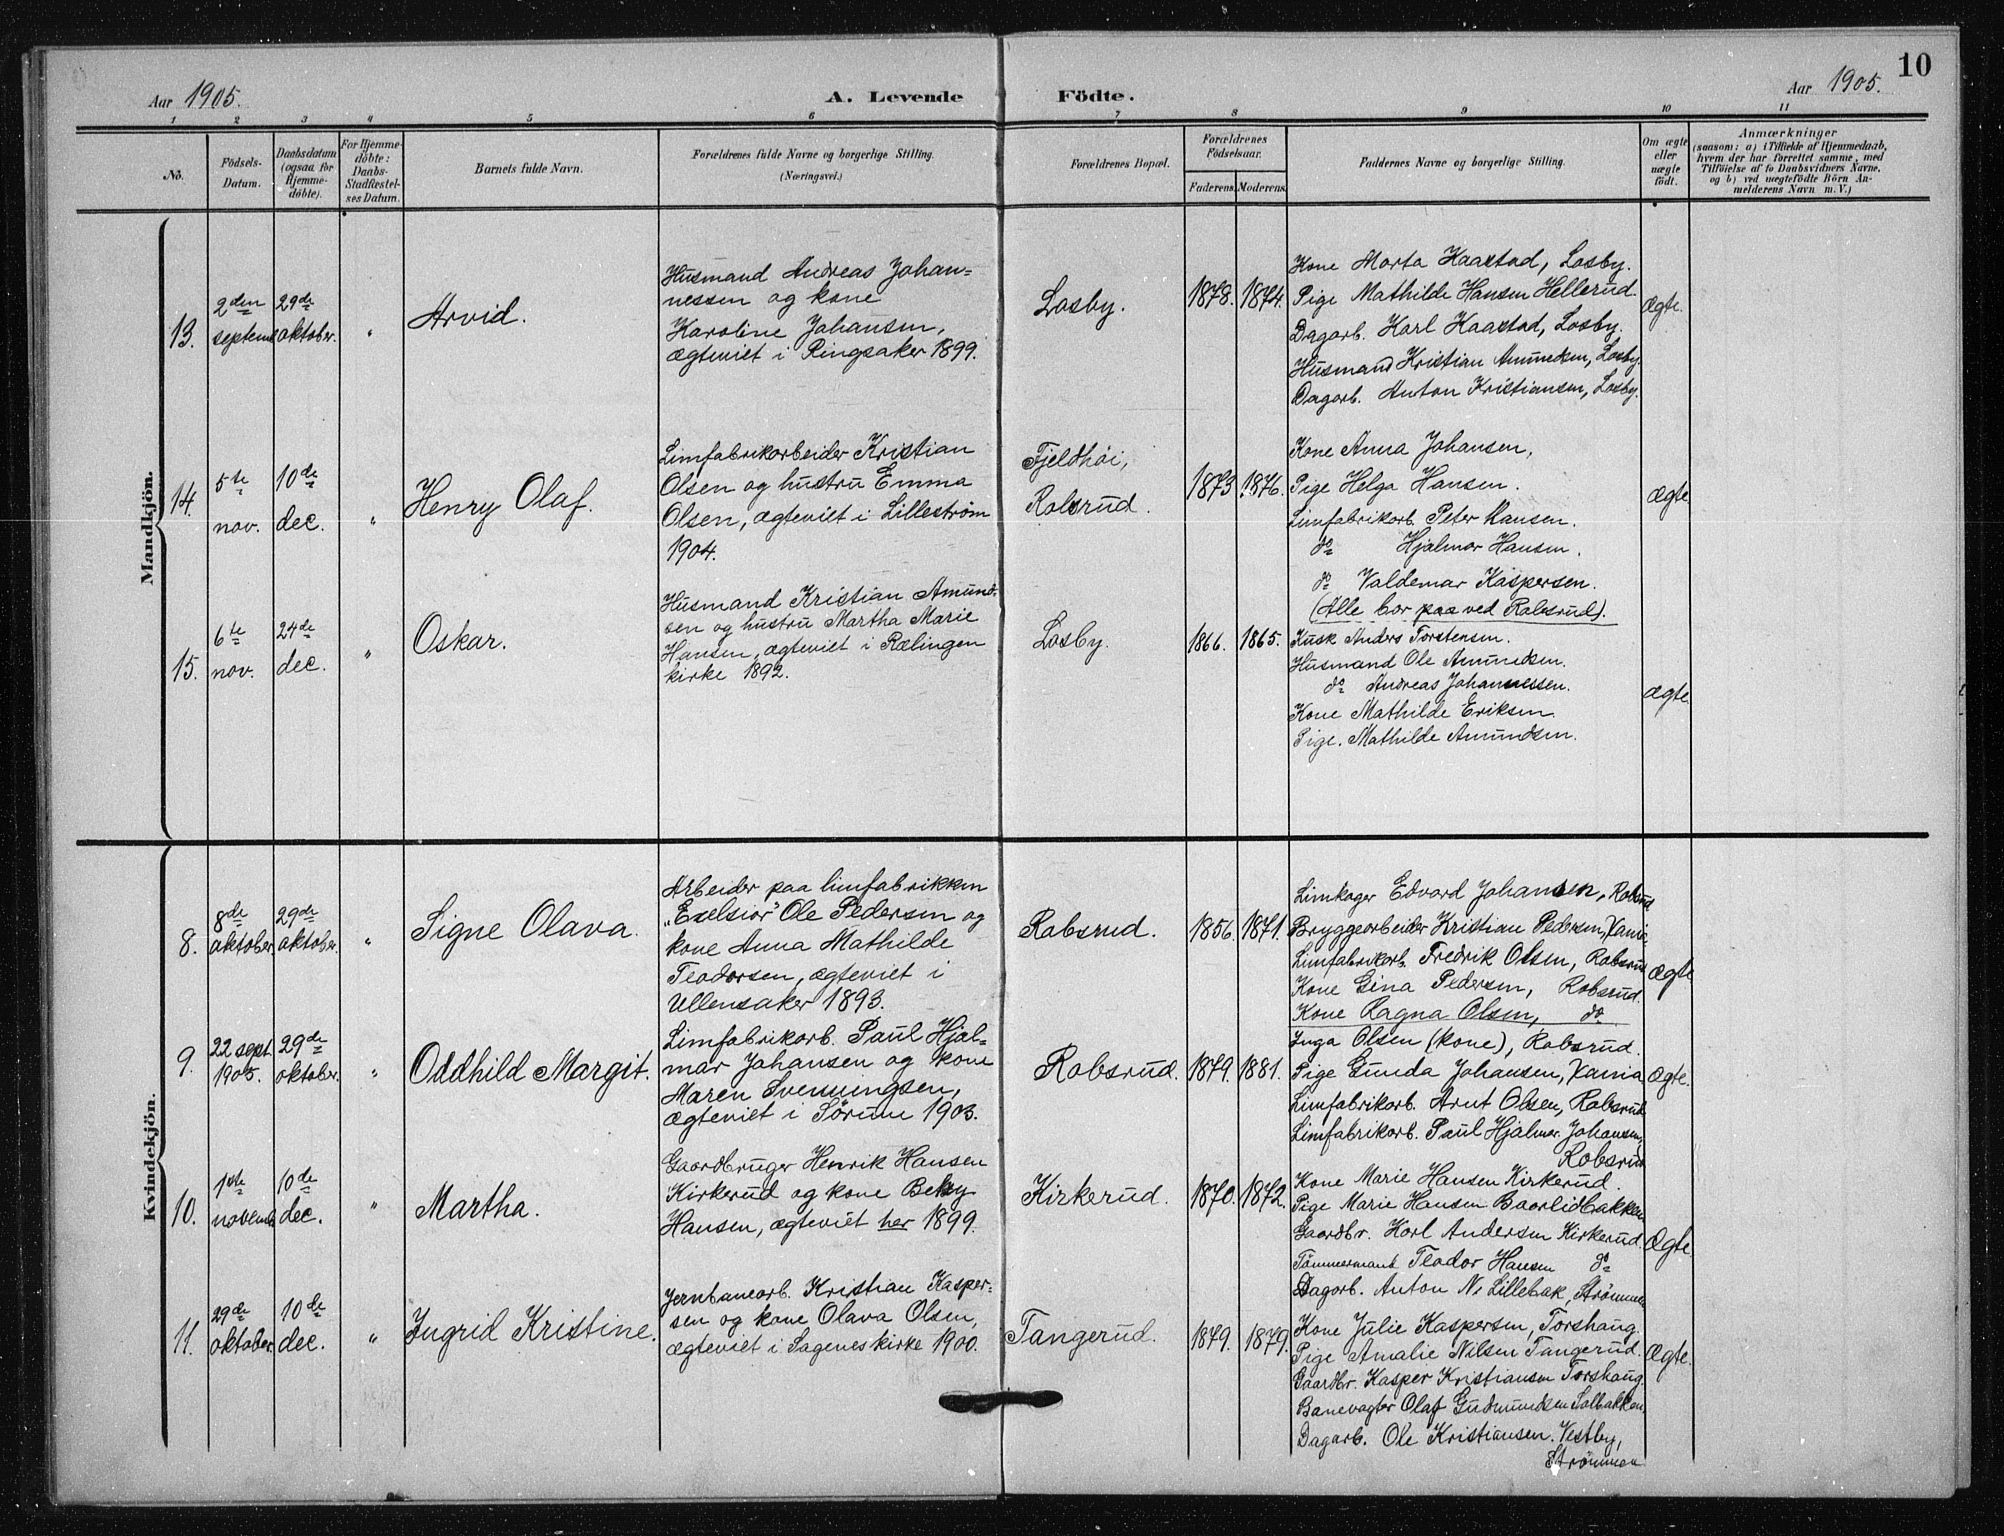 10
Aar 1905.
A. Levende Födte.
Aar 1905.
1 2 3 4 5 6 7 8 9 10 11
No.
Födsels-
Datum.
Daabsdatum
(ogsaa for
Hjemme-
döbte).
For Hjemme-
döbte:
Daabs-
Stadfæstel-
ses Datum.
Barnets fulde Navn.
Forældrenes fulde Navne og borgerlige Stilling.
(Næringsvei.)
Forældrenes Bopæl.
Forældrenes
Födselsaar.
Faderens. Moderens.
Faddernes Navne og borgerlige Stilling.
Om ægte
eller
uægte
födt.
Anmærkninger
(saasom: a) i Tilfælde af Hjemmedaab,
hvem der har forrettet samme, med
Tilföielse af to Daabsvidners Navne,
og b) ved uægtefödte Börn An-
melderens Navn m. V.)
Mandkjön.
13.
2den
septemb.
29de
oktober.
"
Arvid.
Husmand Andreas Johan-
nessen og kone
Karoline Johansen,
ægteviet i Ringsaker 1899.
Losby.
1878.
1874.
Kone Marta Kaastad, Losby.
Pige Mathilde Hansen Hellerud.
Dagarb. Karl Kaastad, Losby.
Husmand Kristian Amundsen, Losby.
Dagarb. Anton Kristiansen, Losby.
Ægte.
14.
5te
nov.
10de
dec.
"
Henry Olaf.
Limfabrikarbeider Kristian
Olsen og hustru Emma
Olsen, ægteviet i Lillestrøm
1904.
Fjeldhöi,
Robsrud.
1873.
1876.
Kone Anna Johansen,
Pige Helga Hansen.
Limfabrikarb. Peter Hansen.
do Hjalmar Hansen.
do Valdemar Kaspersen.
(Alle bor paa ved Robsrud).
Ægte
15.
6te
nov.
24de
dec.
"
Oskar.
Husmand Kristian Amund-
sen og hustru Martha Marie
Hansen, ægteviet i Rælingen
kirke 1892.
Losby.
1866.
1865.
Kusk Anders Torstensen.
Husmand Ole Amundsen.
do Andreas Johannessen.
Kone Mathilde Eriksen.
Pige. Mathilde Amundsen.
Ægte
Kvindekjön.
8.
8de
oktober.
29de
oktober.
"
Signe Olava.
Arbeider paa limfabrikken
"Exelsior" Ole Pedersen og
kone Anna Mathilde
Teodorsen, ægteviet i
Ullensaker 1893.
Robsrud.
1856.
1871.
Limkoger Edvard Johansen, Robsrud
Bryggearbeider Kristian Pedersen, Xania
Limfabrikarb. Fredrik Olsen, Robsrud
Kone Gina Pedersen, Robsrud.
Kone Ragna Olsen, do
Ægte
9.
22 sept.
1905.
29de
oktober.
"
Oddhild Margit.
Limfabrikarb. Paul Hjal-
mar Johansen og kone
Maren Svenningsen,
ægteviet i Sørum 1903.
Robsrud.
1879.
1881.
Inga Olsen (kone), Robsrud.
Pige Gunda Johansen, Xania
Limfabrikarb. Arnt Olsen, Robsrud
Limfabrikarb. Paul Hjalmar Johansen,
Robsrud
Ægte.
10.
1ste
novemb.
10de
dec.
"
Martha.
Gaardbruger Henrik Hansen
Kirkerud og kone Betsy
Hansen, ægteviet her 1899.
Kirkerud.
1870.
1872.
Kone Marie Hansen Kirkerud.
Pige Marie Hansen Baarlidbakken
Gaardbr. Karl Andersen Kirkerud.
Tømmermand Teodor Hansen do
Dagarb. Anton N. Lillebak, Strømmen
Ægte.
11.
29de
oktober.
10de
dec.
"
Ingrid Kristine.
Jernbanearb. Kristian Kasper-
sen og kone Olava Olsen,
ægteviet i Sagenes kirke 1900.
Tangerud.
1879.
1879.
Kone Julie Kaspersen, Torshaug.
Pige Amalie Nilsen Tangerud.
Gaardbr. Kasper Kristiansen Torshaug.
Banevogter Olaf Gudmundsen Solbakken.
Dagarb. Ole Kristiansen. Vestby,
Strømmen
Ægte.